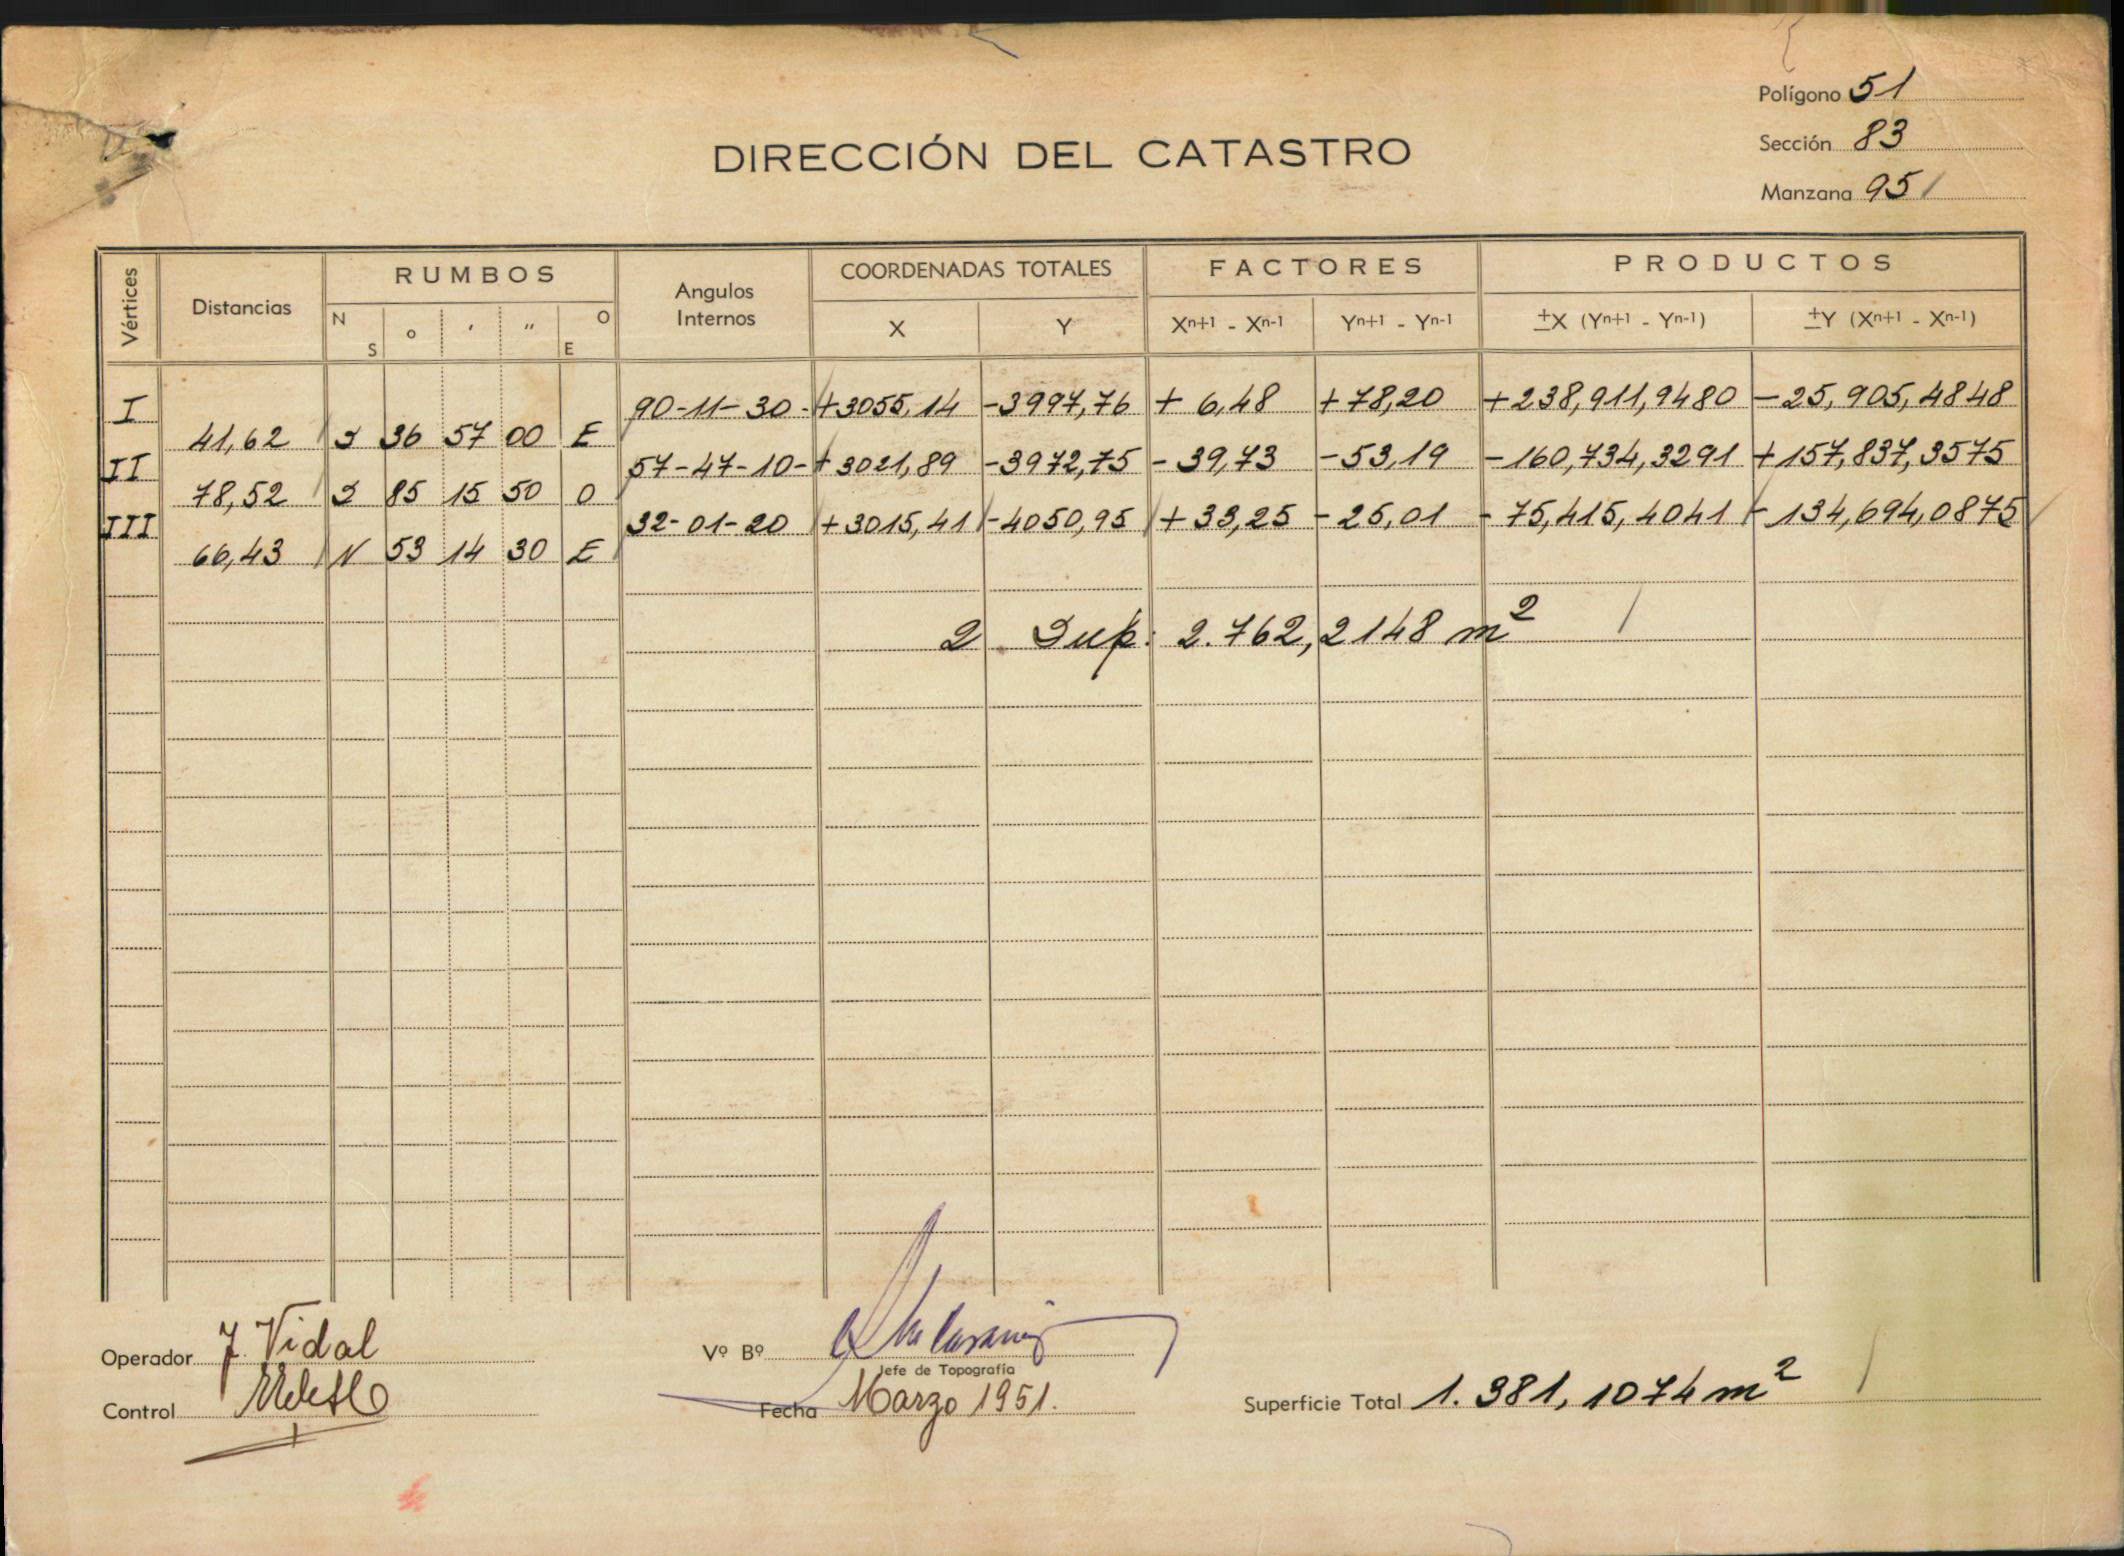 Polígono 51
DIRECCIÓN DEL CATASTRO
Sección 83
Manzana 95
Vértices Distancias RUMBOS Angulos Internos COORDENADAS TOTALES FACTORES PRODUCTOS
N S ° ′ ″ O E X Y Xn+1 - Xn-1 Yn+1 - Yn-1 ±X (Yn+1 - Yn-1) ±Y (Xn+1 - Xn-1)
I 90-11-30- +3055,14 -3997,76 + 6,48 +78,20 +238,911,9480 -25,905,4848
41,62 S 36 57 00 E
II 57-47-10- +3021,89 -3972,75 -39,73 -53,19 -160,734,3291 +157,837,3575
78,52 S 85 15 50 O
III 32-01-20 +3015,41 -4050,95 +33,25 -25,01 -75,415,4041 -134,694,0875
66,43 N 53 14 30 E
2 Sup: 2.762,2148 m²
Operador J. Vidal
Vº Bº
Jefe de Topografía
Control
Fecha Marzo 1951.
Superficie Total 1.381,1074 m²